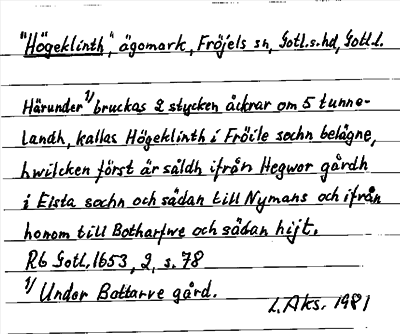 "Högeklinth", ägomark, Fröjels sn, Gotl.s.hd, Gotl.l.
Härunder 1) bruckas 2 stycken åckrar om 5 tunne-
landh, kallas Högeklinth i Fröile sochn belägne,
hwilcken först är såldh ifrån Hegwor gårdh
i Elsta sochn och sädan till Nymans och ifrån
honom till Botharfwe och sädan hijt.
Rb Gotl, 1653, 2, s. 78
1) Under Bottarve gård.
L. Aks. 1981